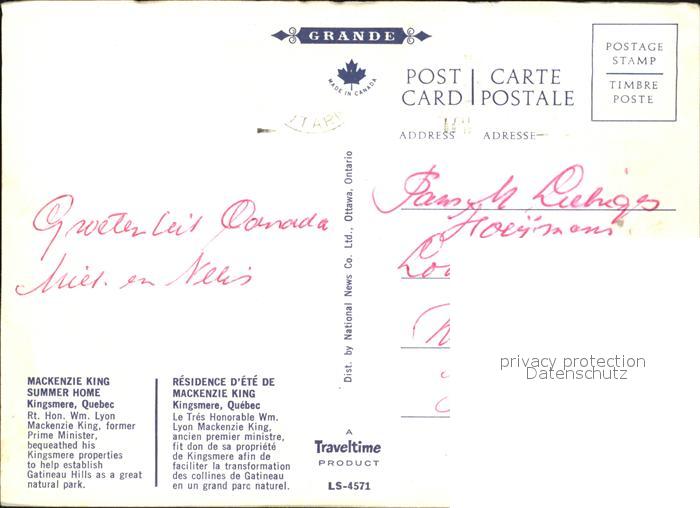 GRANDE
MADE IN CANADA
POST CARD
CARTE POSTALE
POSTAGE
STAMP
TIMBRE
POSTE
ADDRESS ADRESSE
Groeten uit Canada
Mied. en Nelis
Hoeijmans
Dist. by National News Co. Ltd., Ottawa, Ontario
privacy protection
Datenschutz
MACKENZIE KING
SUMMER HOME
Kingsmere, Quebec
Rt. Hon. Wm. Lyon
Mackenzie King, former
Prime Minister,
bequeathed his
Kingsmere properties
to help establish
Gatineau Hills as a great
natural park.
RÉSIDENCE D'ÉTÉ DE
MACKENZIE KING
Kingsmere, Québec
Le Trés Honorable Wm.
Lyon Mackenzie King,
ancien premier ministre,
fit don de sa propriété
de Kingsmere afin de
faciliter la transformation
des collines de Gatineau
en un grand parc naturel.
A
Traveltime
PRODUCT
LS-4571